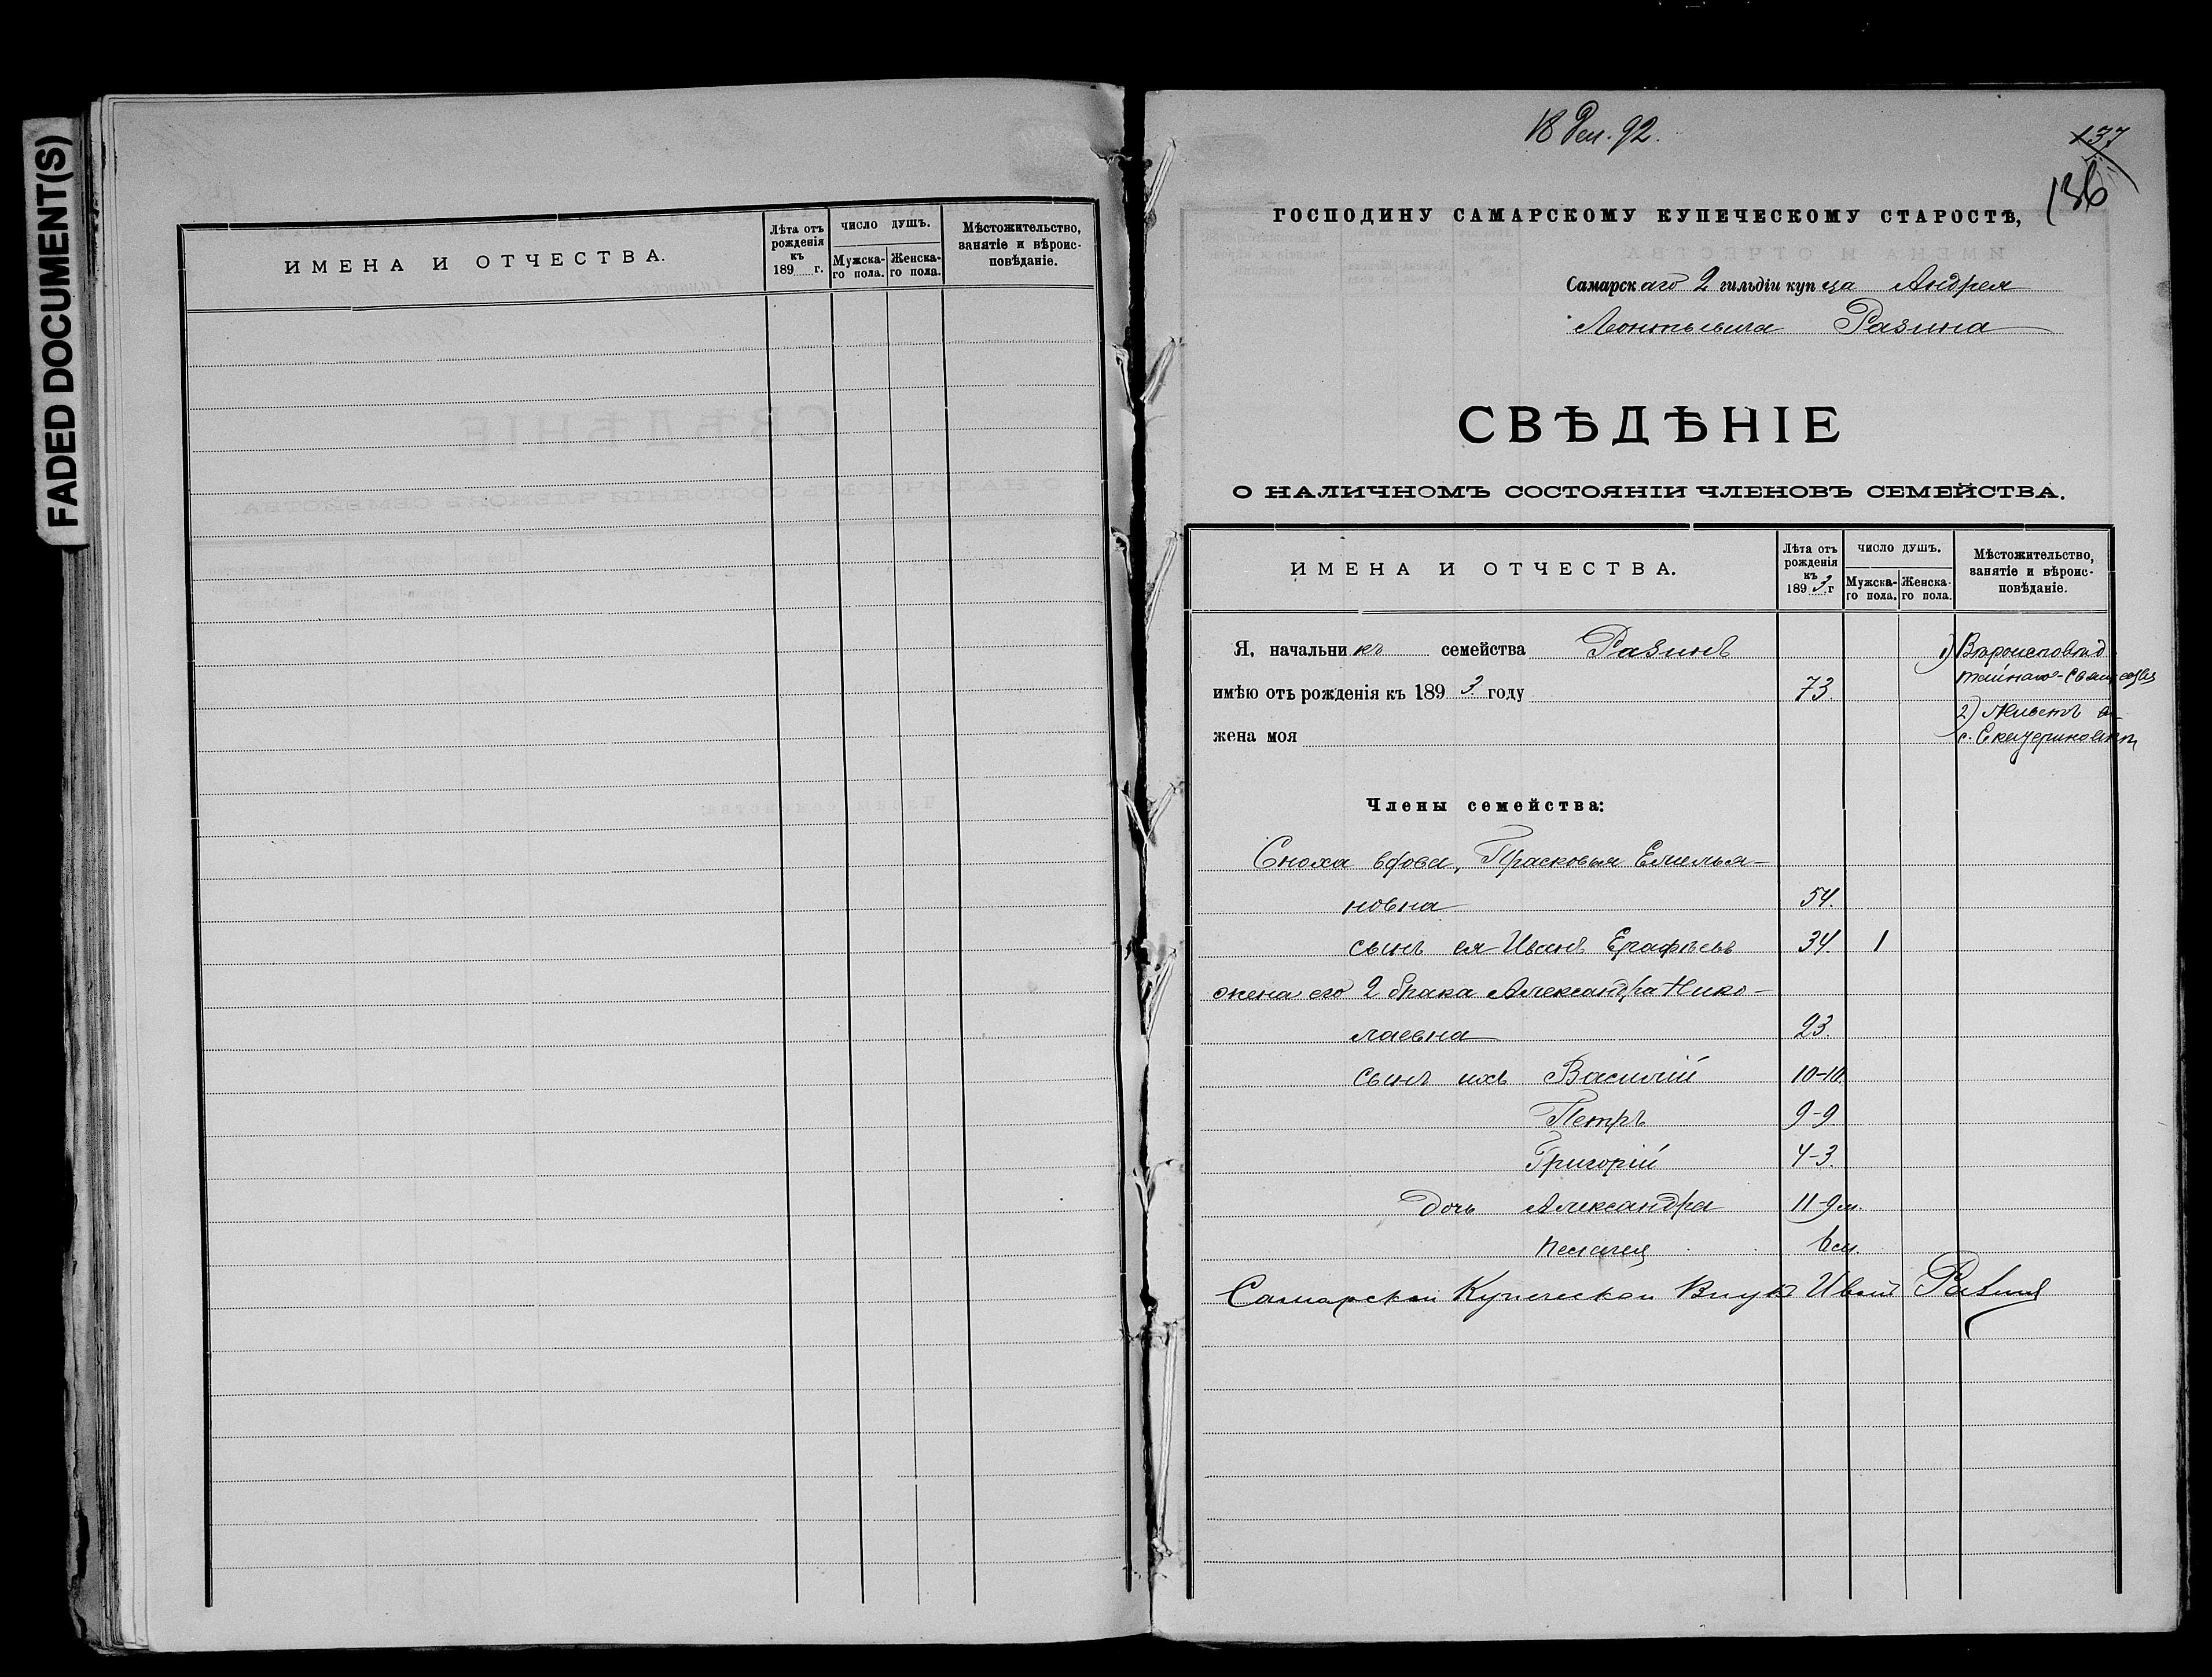 FADED DOCUMENT(S)
ИМЕНА И ОТЧЕСТВА.
Лѣта отъ рожденія къ 189 г.
ЧИСЛО ДУШЪ.
Мужска-го пола.
Женска-го пола.
Мѣстожительство, занятіе и вѣроис-повѣданіе.
18 Дек. 92.
137
136
ГОСПОДИНУ САМАРСКОМУ КУПЕЧЕСКОМУ СТАРОСТѢ,
Самарскаго 2 гильдіи купца Андрея
Леонтьевича Разина
СВѢДѢНІЕ
О НАЛИЧНОМЪ СОСТОЯНІИ ЧЛЕНОВЪ СЕМЕЙСТВА.
ИМЕНА И ОТЧЕСТВА.
Лѣта отъ рожденія къ 1893 г
ЧИСЛО ДУШЪ.
Мужска-го пола.
Женска-го пола.
Мѣстожительство, занятіе и вѣроис-повѣданіе.
Я, начальникъ семейства Разинъ
имѣю отъ рожденія къ 1893 году 73.
жена моя
1) Вѣроисповѣд
2) Живетъ в
с. Екатериновкѣ
Члены семейства:
Сноха вдова, Прасковья Емелья-
новна 54.
сынъ ея Иванъ Ерафѣевъ 34 1
жена его 2 брака Александра Нико-
лаевна 23.
сынъ ихъ Василій 10-10.
Петръ 9-9
Григорій 4-3.
дочь Александра 11-9 м.
Пелагея 6 м.
Самарской Купеческой Внукъ Иванъ Разинъ